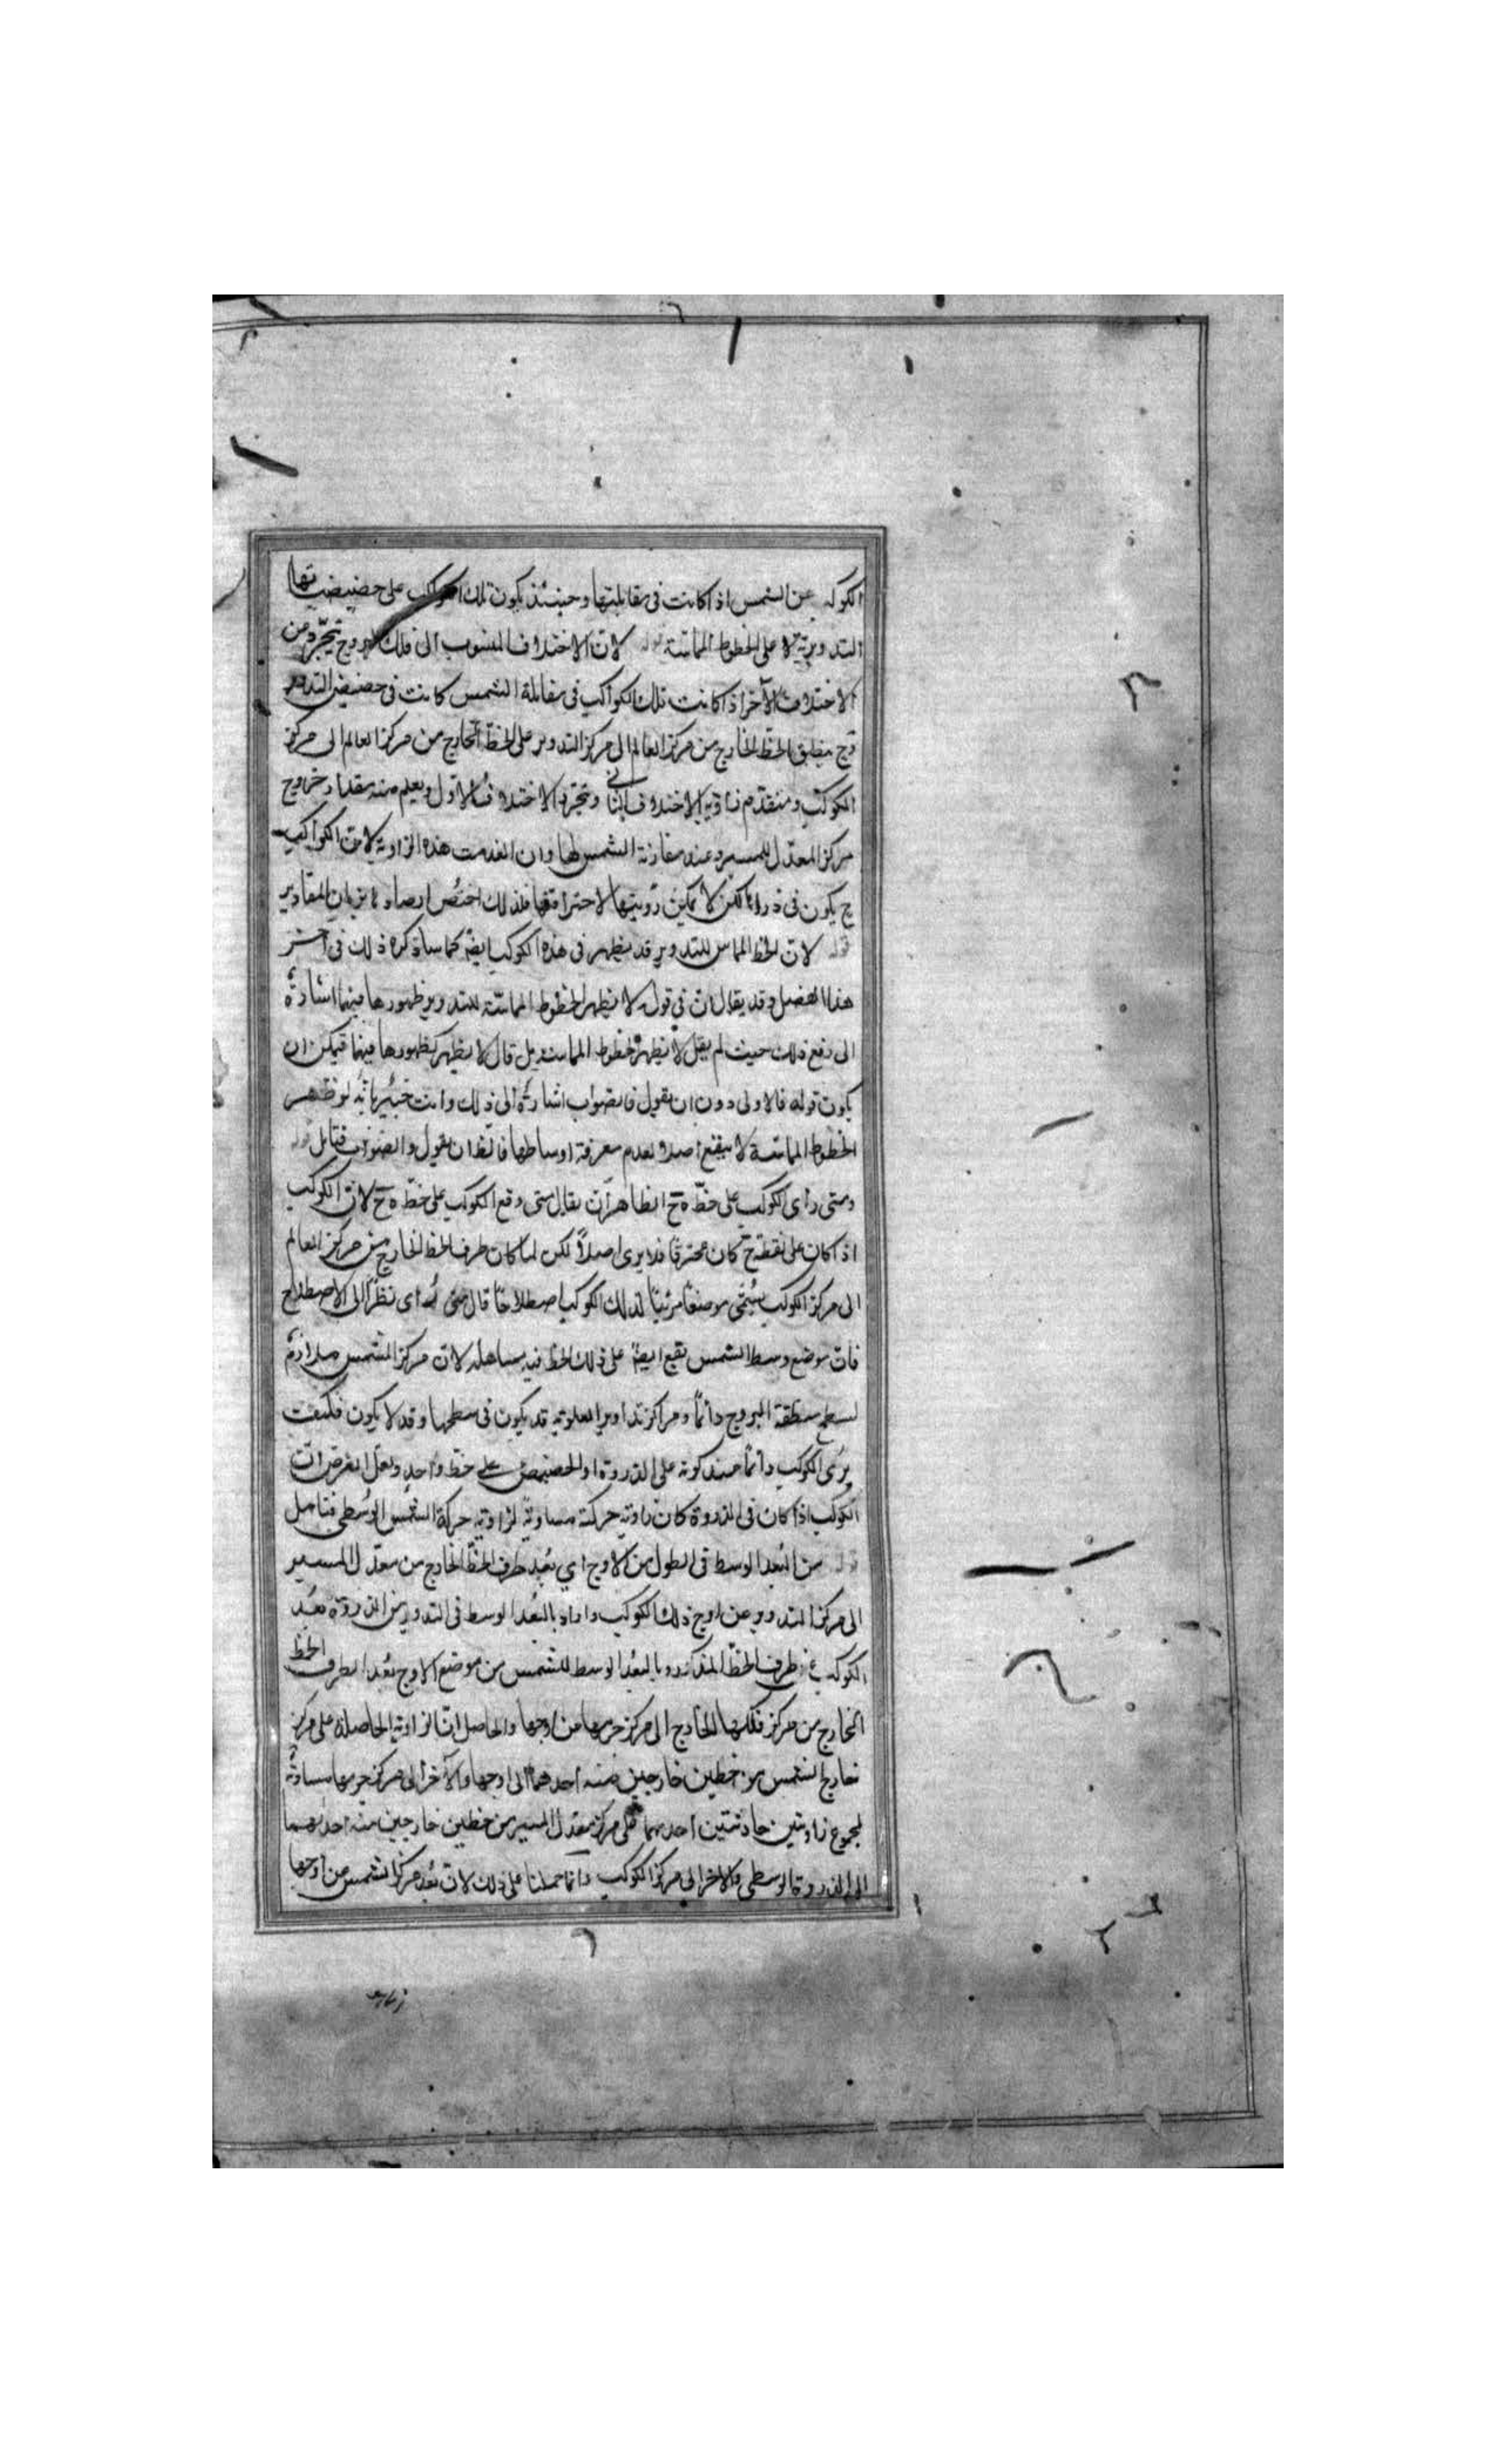 الكوكب عن الشمس اذا كانت فى مقابلتها وحينئذ يكون تلك الكواكب على حضيضاتها
التدويرية لا على الخطوط المماسة قوله لان الاختلاف المنسوب الى فلك البروج تجرد من
الاختلاف الآخر اذا كانت تلك الكواكب فى مقابلة الشمس كانت فى حضيض التدوير
وح ينطبق الخط الخارج من مركز العالم الى مركز التدوير على الخط الخارج من مركز العالم الى مركز
الكوكب وينعدم زاوية الاختلاف الثانى وتجرد الاختلاف الاول ويعلم منه مقدار خروج
مركز المعدل للمسير وعند مقارنة الشمس لها وان انعدمت هذه الزاوية لان الكواكب
ح يكون فى ذراها لكن لا يمكن رؤيتها لاحتراقها فلذلك اختص ارصاد بيان المقادير
قوله لان الخط المماس للتدوير قد يظهر فى هذه الكواكب ايضا كما سأذكره ذلك فى آخر
هذا الفصل وقد يقال ان فى قوله لا يظهر الخطوط المماسة للتدوير ظهورها فيهما اشارة
الى دفع ذلك حيث لم يقل لا يظهر الخطوط المماسة بل قال لا يظهر كظهورها فيهما فيمكن ان
يكون قوله فالاولى دون ان يقول فالصواب اشارة الى ذلك وانت خبير بانه لو ظهر
الخطوط المماسة لا ينفع اصلا لعدم معرفة اوساطها فالحق ان يقول والصواب فتأمل قوله
ومتى رأى الكوكب على خط ه ح الظاهر ان يقال متى وقع الكوكب على خط ه ح لان الكوكب
اذا كان على نقطة ح كان محترقا فلا يرى اصلاً لكن لما كان طرف الخط الخارج من مركز العالم
الى مركز الكوكب يسمى موضعا مرئيا لذلك الكوكب اصطلاحا قال متى رُئى نظرا الى الاصطلاح
فان موضع وسط الشمس يقع ايضا على ذلك الخط فيه مساهلة لان مركز الشمس ملازمة
لسطح منطقة البروج دائما ومراكز تداوير العلوية قد يكون فى سطحها وقد لا يكون فكيف
يرى الكوكب دائما عند كونه على الذروة او الحضيض على خط واحد ولعل الغرض ان
الكوكب اذا كان فى الذروة كان زاوية حركته مساوية لزاوية حركة الشمس الوسطى فتامل
قوله من البعد الوسط فى الطول من الاوج اي بعد طرف الخط الخارج من معدل المسير
الى مركز التدوير عن اوج ذلك الكوكب واراد بالبعد الوسط فى التدوير من الذروة بعد
الكوكب عن طرف الخط المذكور وبالبعد الوسط للشمس من موضع الاوج بعد طرف الخط
الخارج من مركز فلكها الخارج الى مركز جرمها من اوجها والحاصل ان الزاوية الحاصلة على مركز
خارج الشمس من خطين خارجين منه احدهما الى اوجها والآخر الى مركز جرمها مساوية
لمجموع زاويتين حادثتين احدهما على مركز معدل المسير من خطين خارجين منه احدهما
الى الذروة الوسطى والآخر الى مركز الكوكب وانما حملنا على ذلك لان بعد مركز الشمس من اوجها